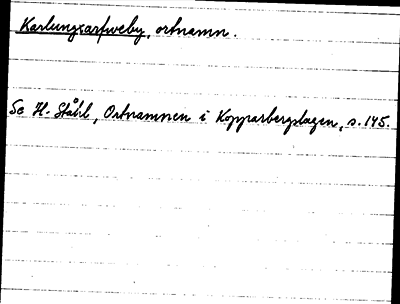 Karlungxarfweby, ortnamn.
Se H. Ståhl, Ortnamnen i Kopparbergslagen, s. 145.